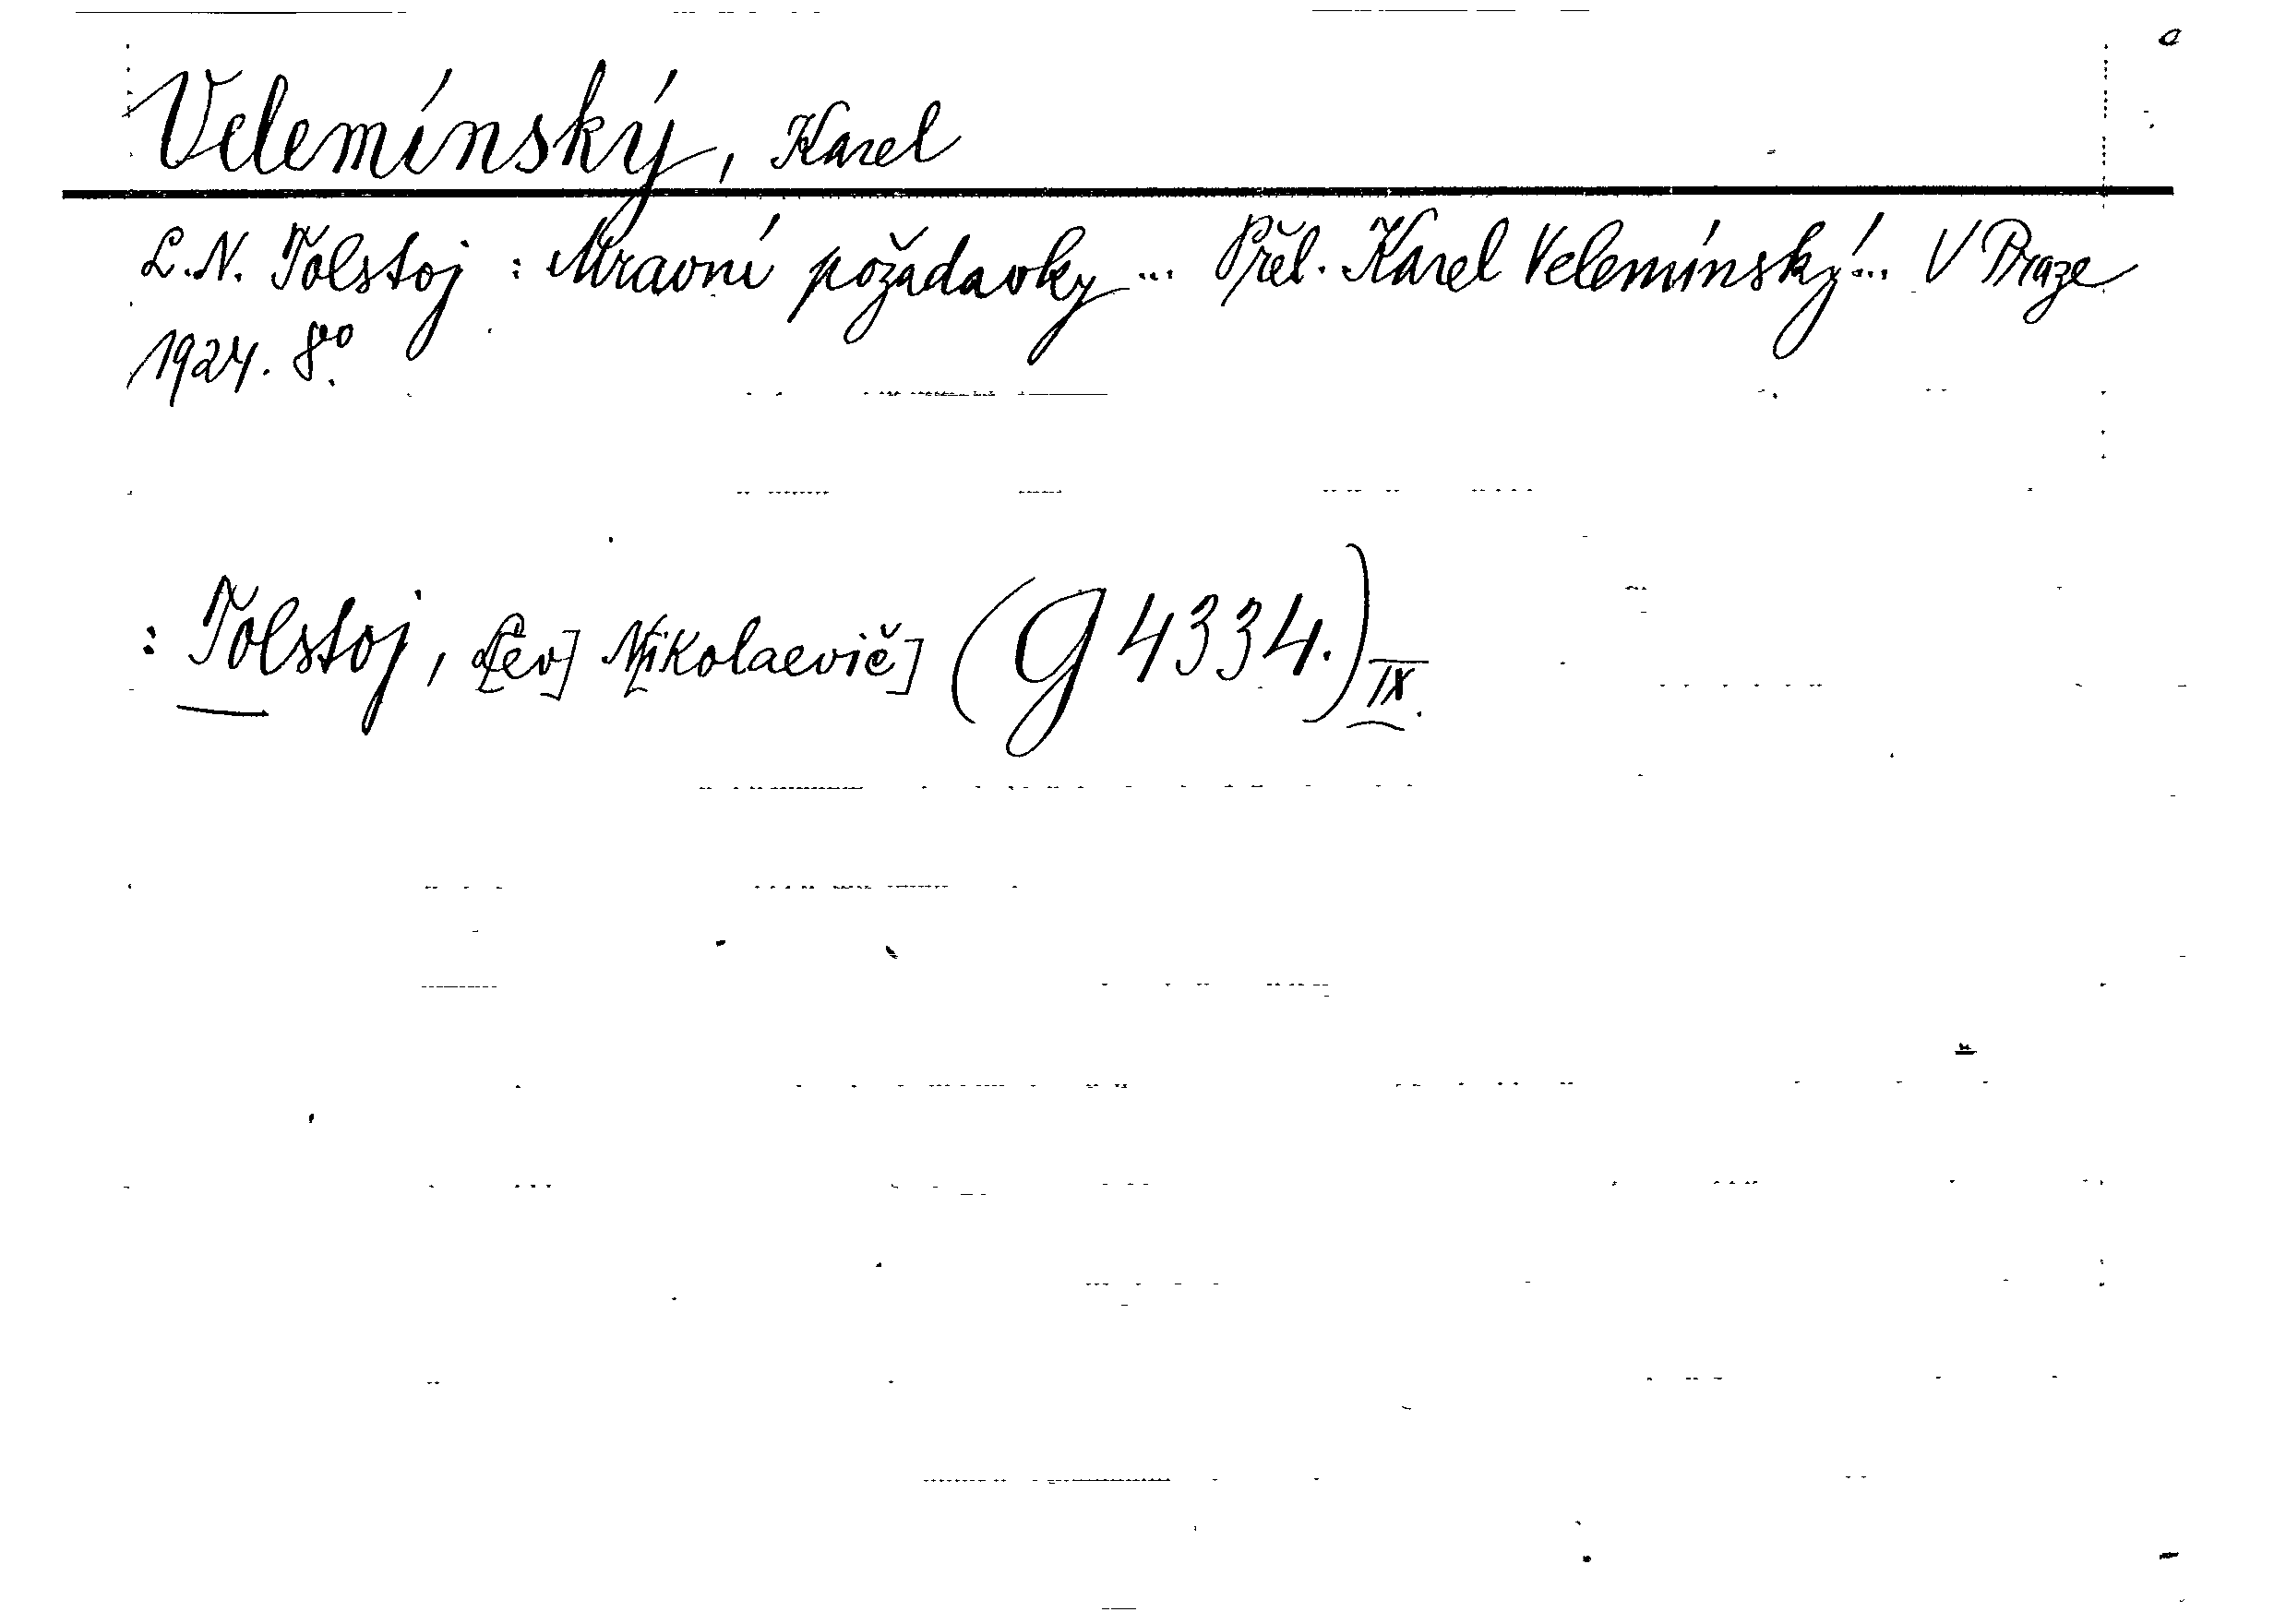 Velemínský, Karel
L. N. Tolstoj : Mravní požadavky ... Přel. Karel Velemínský ... V Praze
1924. 8°.
: Tolstoj, L[ev] N[ikolaevič] (G 4334.) IX.